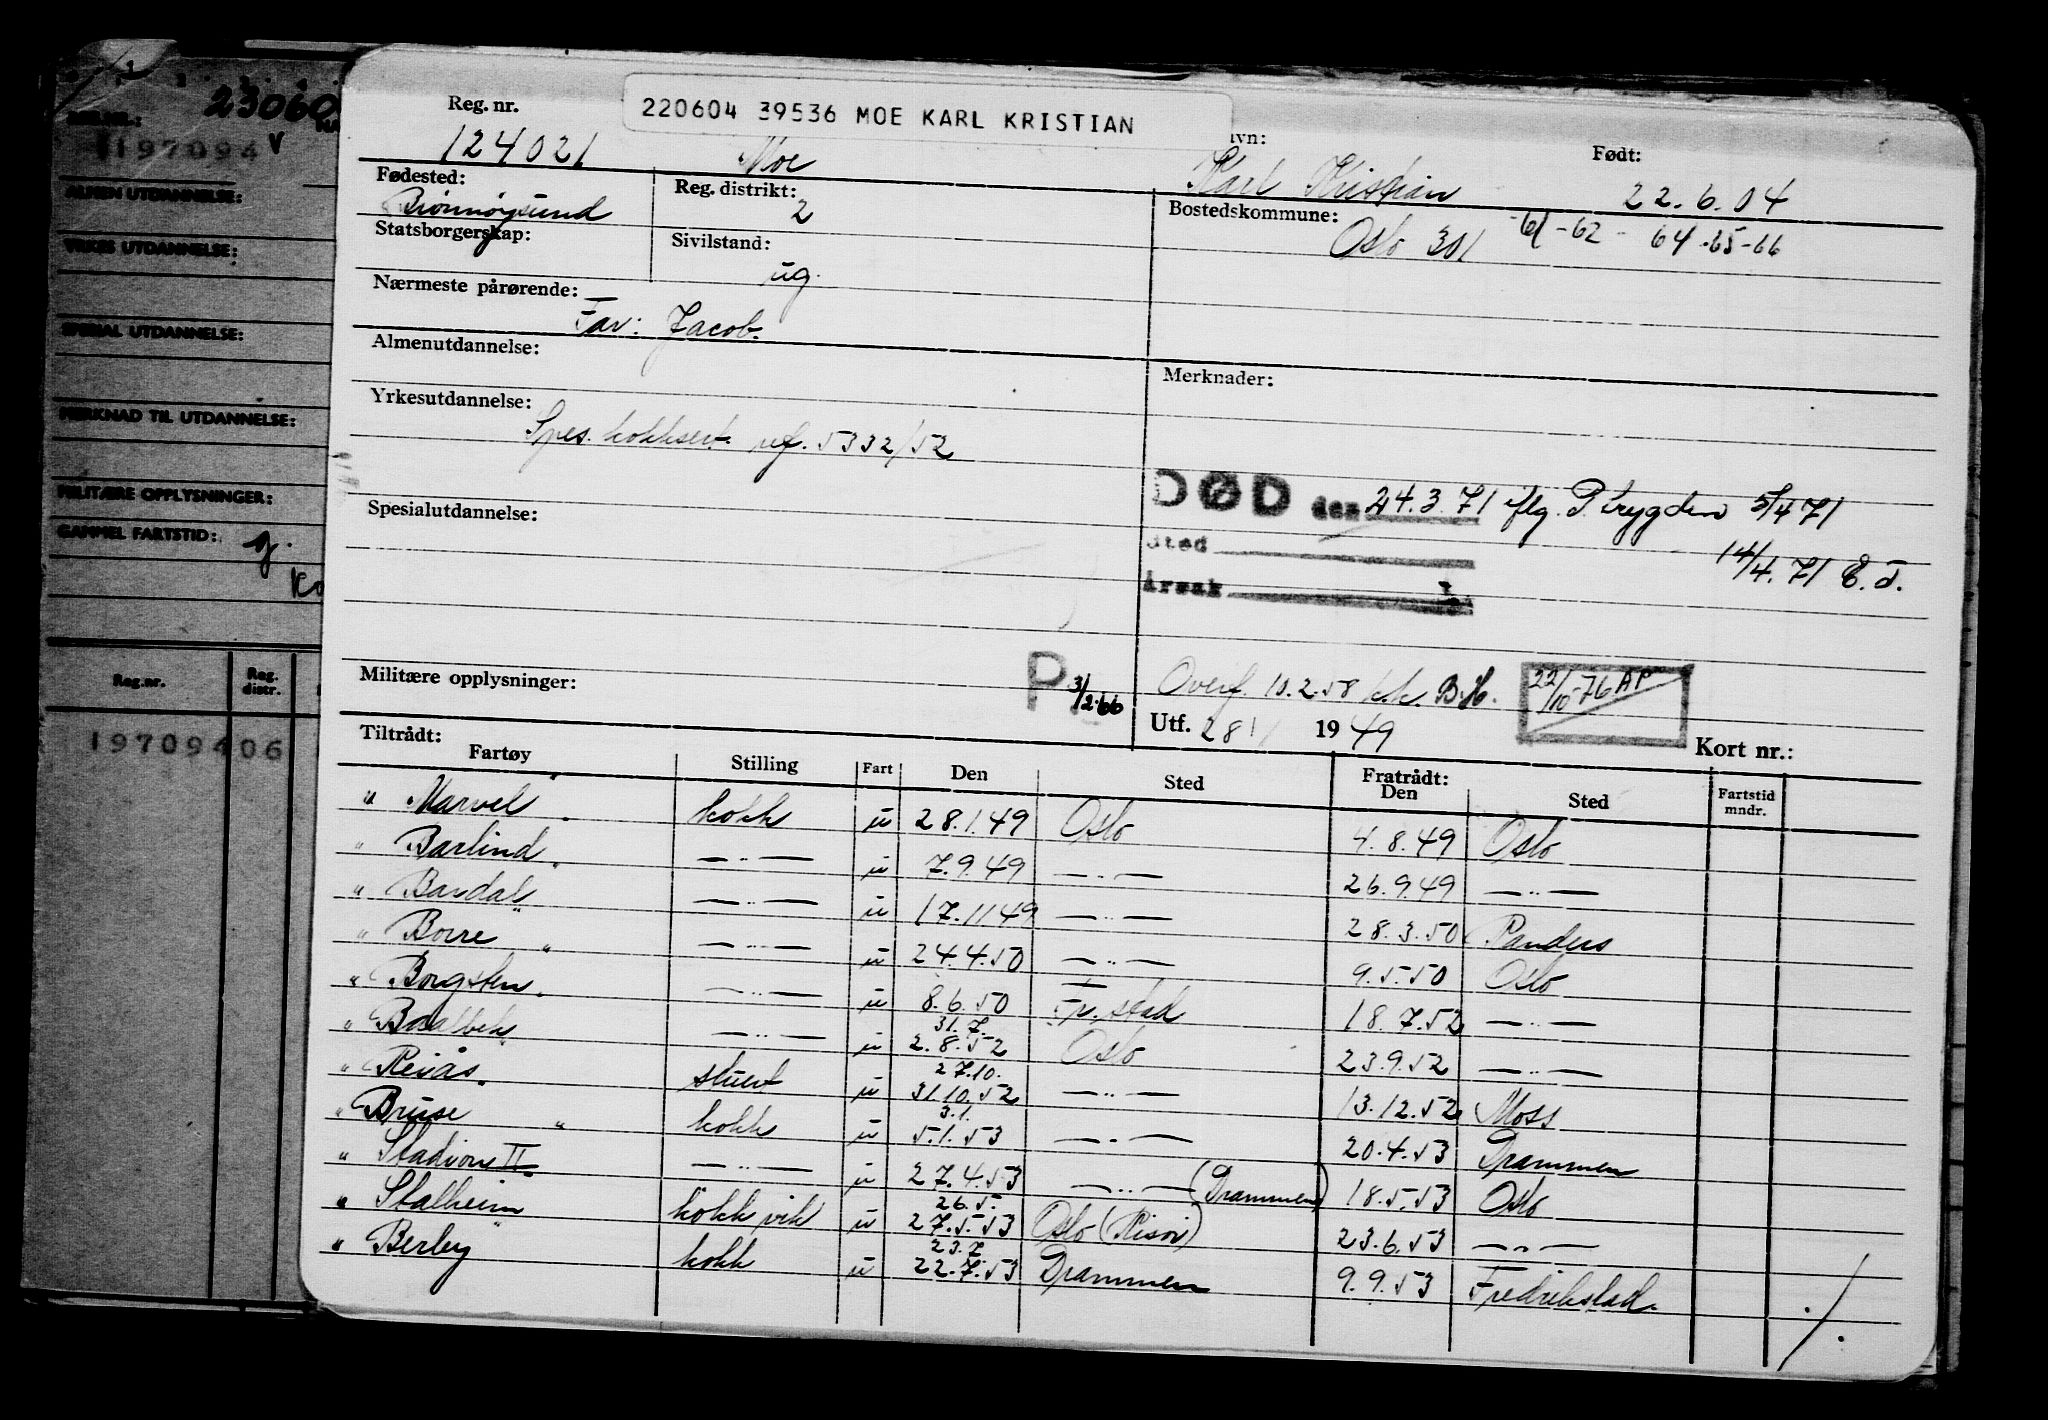 23060
REG.NR.: NA
197094 v
ALMEN UTDANNELSE:
YRKES UTDANNELSE:
SPESIAL UTDANNELSE:
MERKNAD TIL UTDANNELSE:
MILITÆRE OPPLYSNINGER:
GAMMEL FARTSTID: g.
Ko
Reg.nr. Reg. distr.
19709406
220604 39536 MOE KARL KRISTIAN
Reg. nr. vn: Født:
124021 Moe Karl Kristian 22.6.04
Fødested: Reg. distrikt: Bostedskommune:
Brønnøysund 2 Oslo 301 -61-62 - 64-65-66
Statsborgerskap: Sivilstand:
ug.
Nærmeste pårørende:
Far: Jacob.
Almenutdannelse: Merknader:
Yrkesutdannelse:
Spes. kokksert. ref. 5332/52
DØD den 24.3.71 iflg. P.trygden 5/4 71
Spesialutdannelse:
Sted 14/4.71 E.T.
Årsak
Militære opplysninger: P 3/2.66 Overf. 10.2.58 k.k. B.H. 22/10-76 AP
Utf. 28/1 1949 Kort nr.:
Tiltrådt: Fratrådt:
Fartøy Stilling Fart Den Sted Den Sted Fartstid mndr.
" Marvel " kokk u 28.1.49 Oslo 4.8.49 Oslo
" Barlind " —..— u 7.9.49 —..— 26.9.49 —..—
" Bandak " —..— u 17.11.49 —..— 28.3.50 Randers
" Borre " —..— u 24.4.50 —..— 9.5.50 Oslo
" Borgsten " —..— u 8.6.50 Fr. stad 18.7.52 —..—
31.7.
" Baalbek " —..— u 2.8.52 Oslo 23.9.52 —..—
27.10.
" Reiås " stuert u 31.10.52 —..— 13.12.52 Moss
3.1.
" Bruse " kokk u 5.1.53 —..— 20.4.53 Drammen
" Stadion II —..— u 27.4.53 —..— (Drammen) 18.5.53 Oslo
26.5.
" Stalheim kokk vik u 27.5.53 Oslo (Risør) 23.6.53 —..—
23.7
" Berby " kokk u 22.7.53 Drammen 9.9.53 Fredrikstad ./.